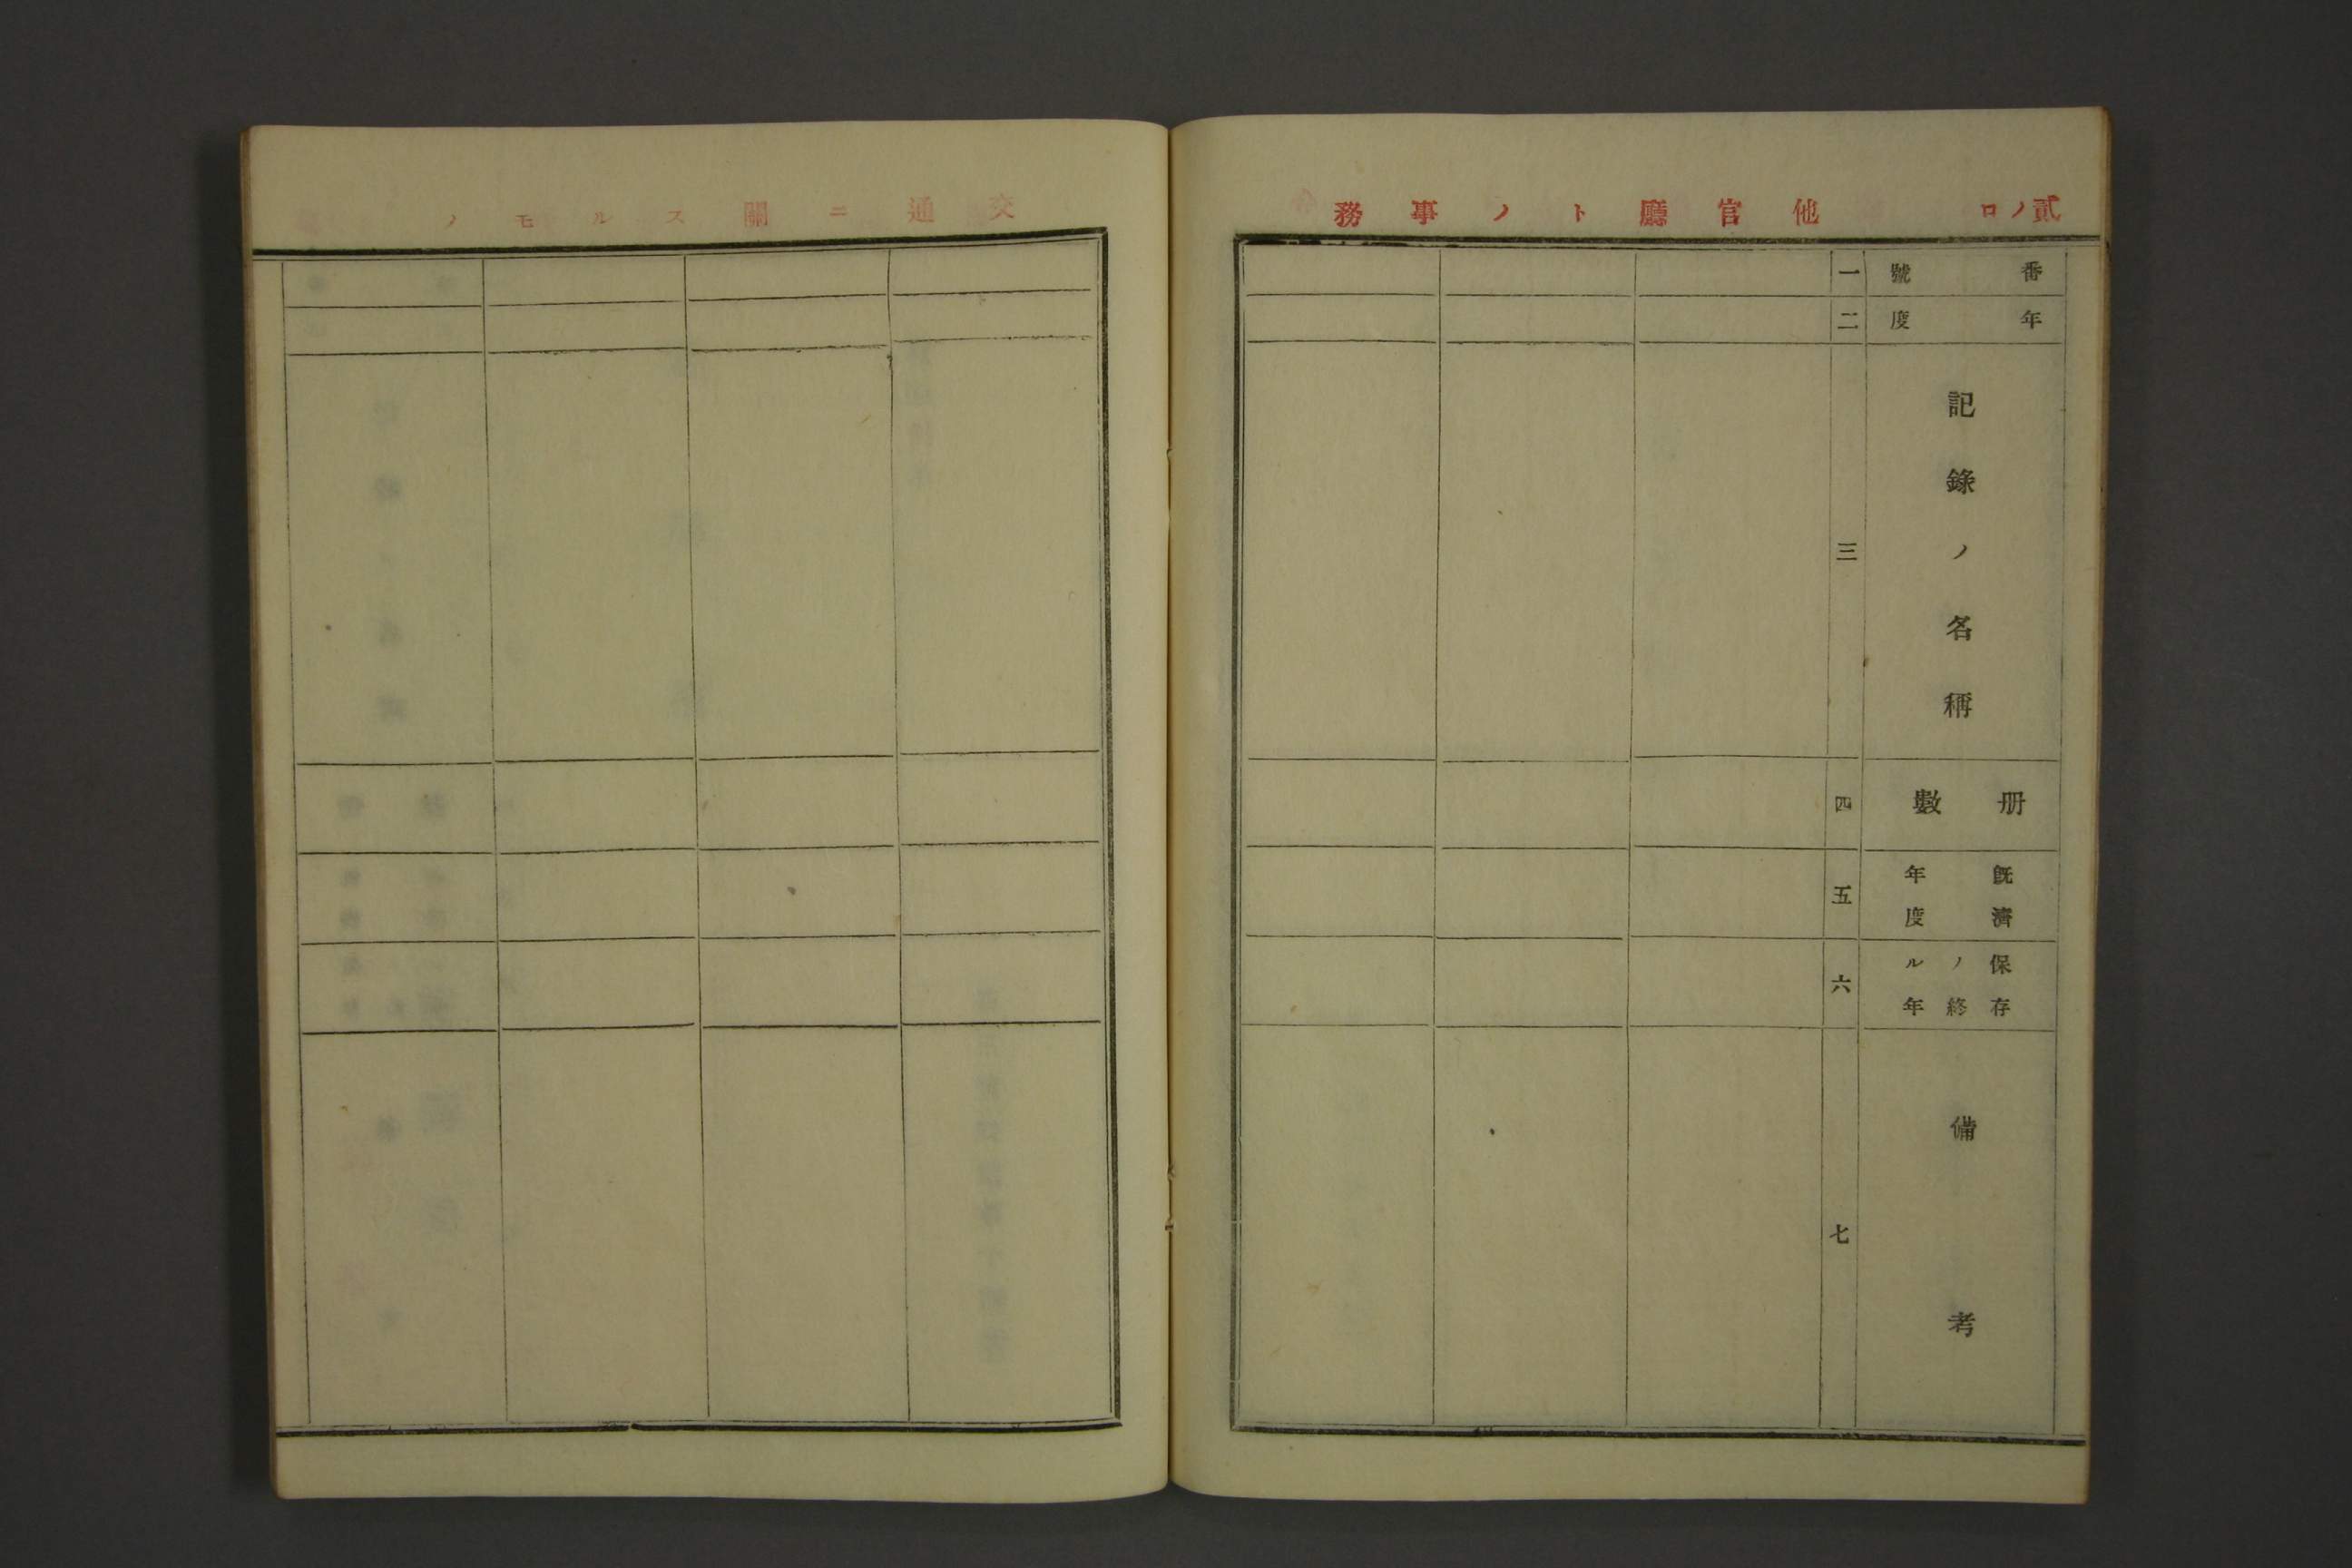 貳ノロ
他官廳トノ事務
番號
年度
記錄ノ名稱
册數
既濟年度
保存ノ終ル年
備考
一
二
三
四
五
六
七
交通ニ關スルモノ